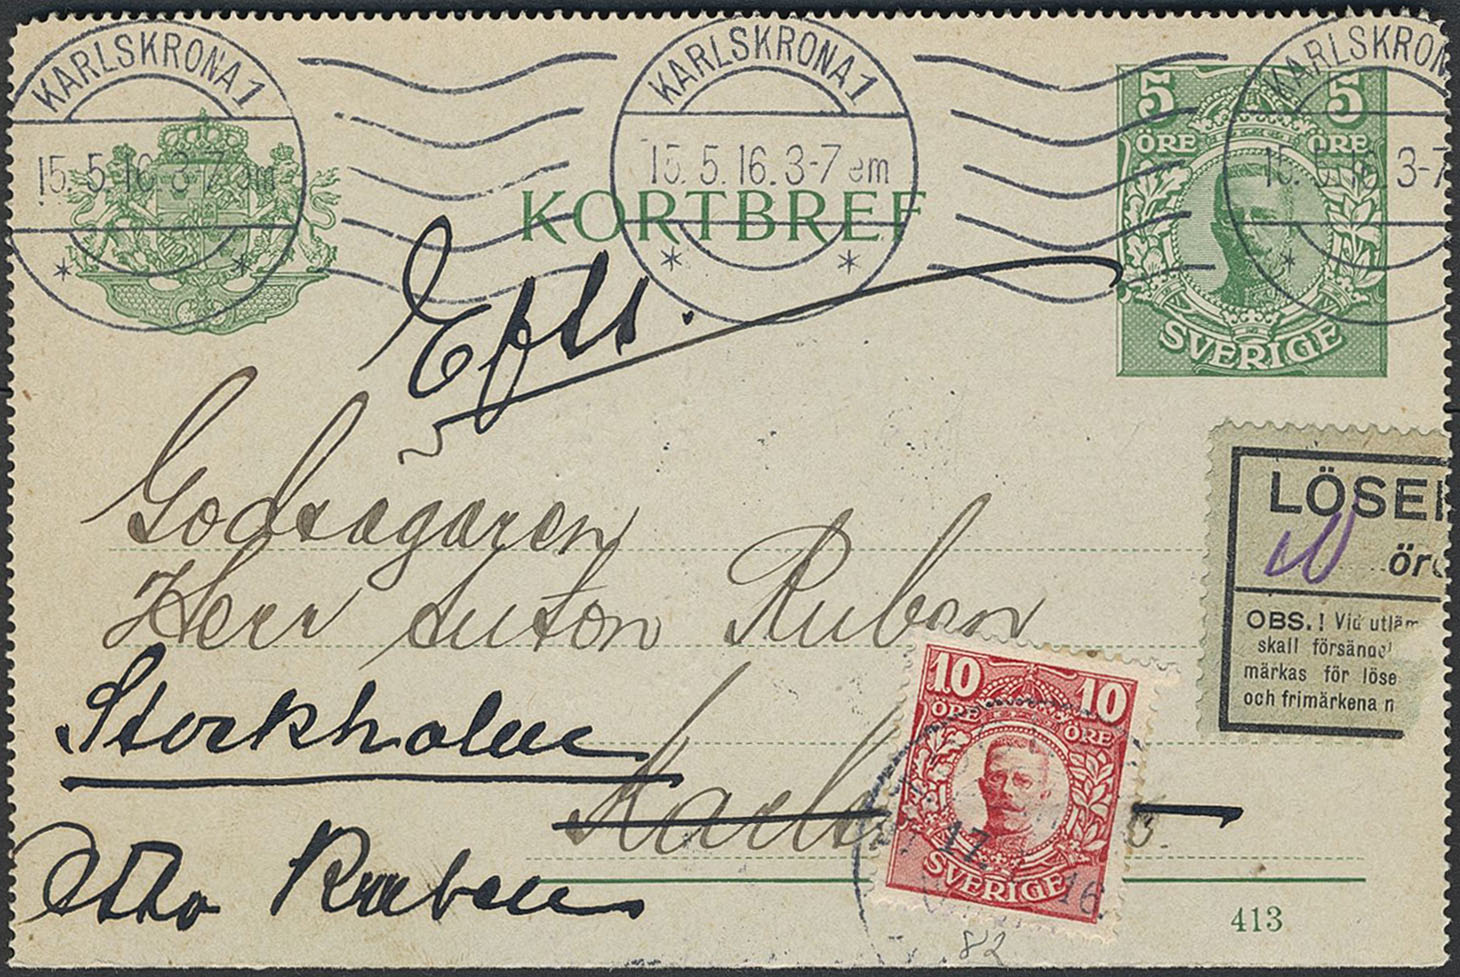 KARLSKRONA 1
15.5.16.3-7 em
KARLSKRONA 1
15.5.16.3-7 em
KARLSKRON
15.5.16 3-7
5 5
ÖRE ÖRE
SVERIGE
KORTBREF
Eft.
Godsägaren
Herr Anton Ruben
Stockholm
Karls
Otto Ruben
LÖSE
10 öre
OBS.! Vid utläm
skall försänd
märkas för löse
och frimärkena n
10 10
ÖRE ÖRE
SVERIGE
17
16.
413
82